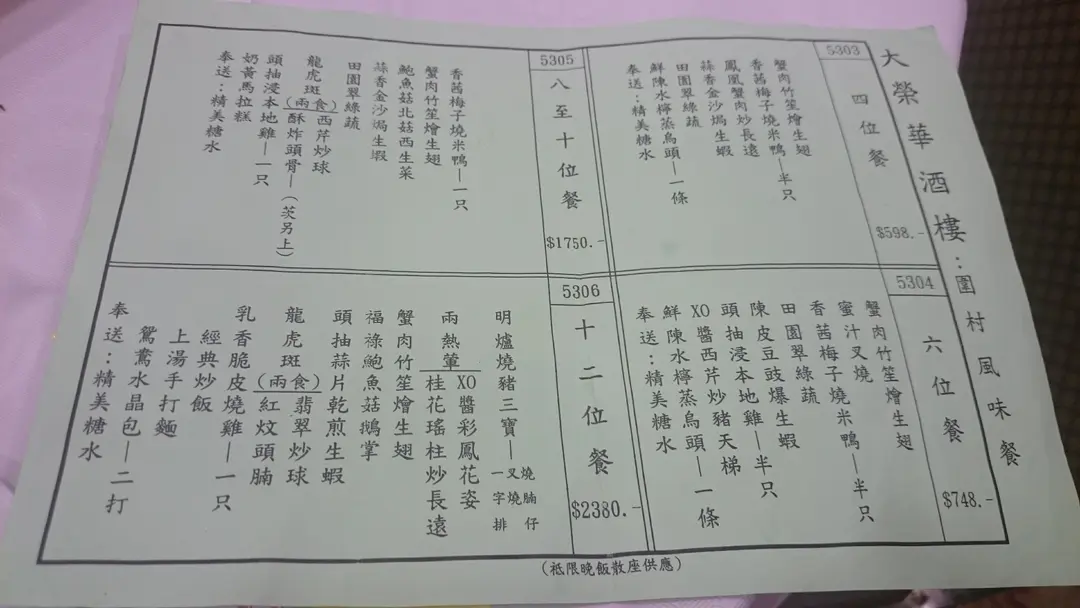 大榮華酒樓：圍村風味餐
5303
四位餐
$598.-
蟹肉竹笙燴生翅
香茜梅子燒米鴨—半只
鳳凰蟹肉炒長遠
蒜香金沙焗生蝦
田園翠綠蔬
鮮陳水檸蒸烏頭—一條
奉送：精美糖水
5304
六位餐
$748.-
蟹肉竹笙燴生翅
蜜汁叉燒
香茜梅子燒米鴨—半只
田園翠綠蔬
陳皮豆豉爆生蝦
頭抽浸本地雞—半只
XO醬西芹炒豬天梯
鮮陳水檸蒸烏頭—一條
奉送：精美糖水
5305
八至十位餐
$1750.-
香茜梅子燒米鴨—一只
蟹肉竹笙燴生翅
鮑魚菇北菇西生菜
蒜香金沙焗生蝦
田園翠綠蔬
龍虎斑（兩食）西芹炒球
酥炸頭骨—（茨另上）
頭抽浸本地雞—一只
奶黃馬拉糕
奉送：精美糖水
5306
十二位餐
$2380.-
明爐燒豬三寶—燒腩仔
叉燒
一字排
兩熱葷
XO醬彩鳳花姿
桂花瑤柱炒長遠
蟹肉竹笙燴生翅
福祿鮑魚菇鵝掌
頭抽蒜片乾煎生蝦
龍虎斑（兩食）翡翠炒球
紅炆頭腩
乳香脆皮燒雞—一只
經典炒飯
上湯手打麵
鴛鴦水晶包—二打
奉送：精美糖水
（祗限晚飯散座供應）